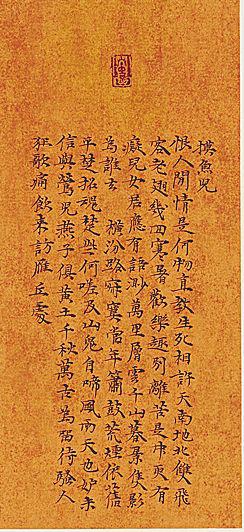 摸魚兒
恨人間情是何物直教生死相許天南地北雙飛
客老翅幾回寒暑歡樂趣別離苦是中更有
癡兒女君應有語渺萬里層雲千山暮景隻影
為誰去 橫汾路寂寞當年簫鼓荒煙依舊
平楚招魂楚些何嗟及山鬼自啼風雨天也妒未
信與鶯兒燕子俱黃土千秋萬古為留待騷人
狂歌痛飲來訪雁丘處